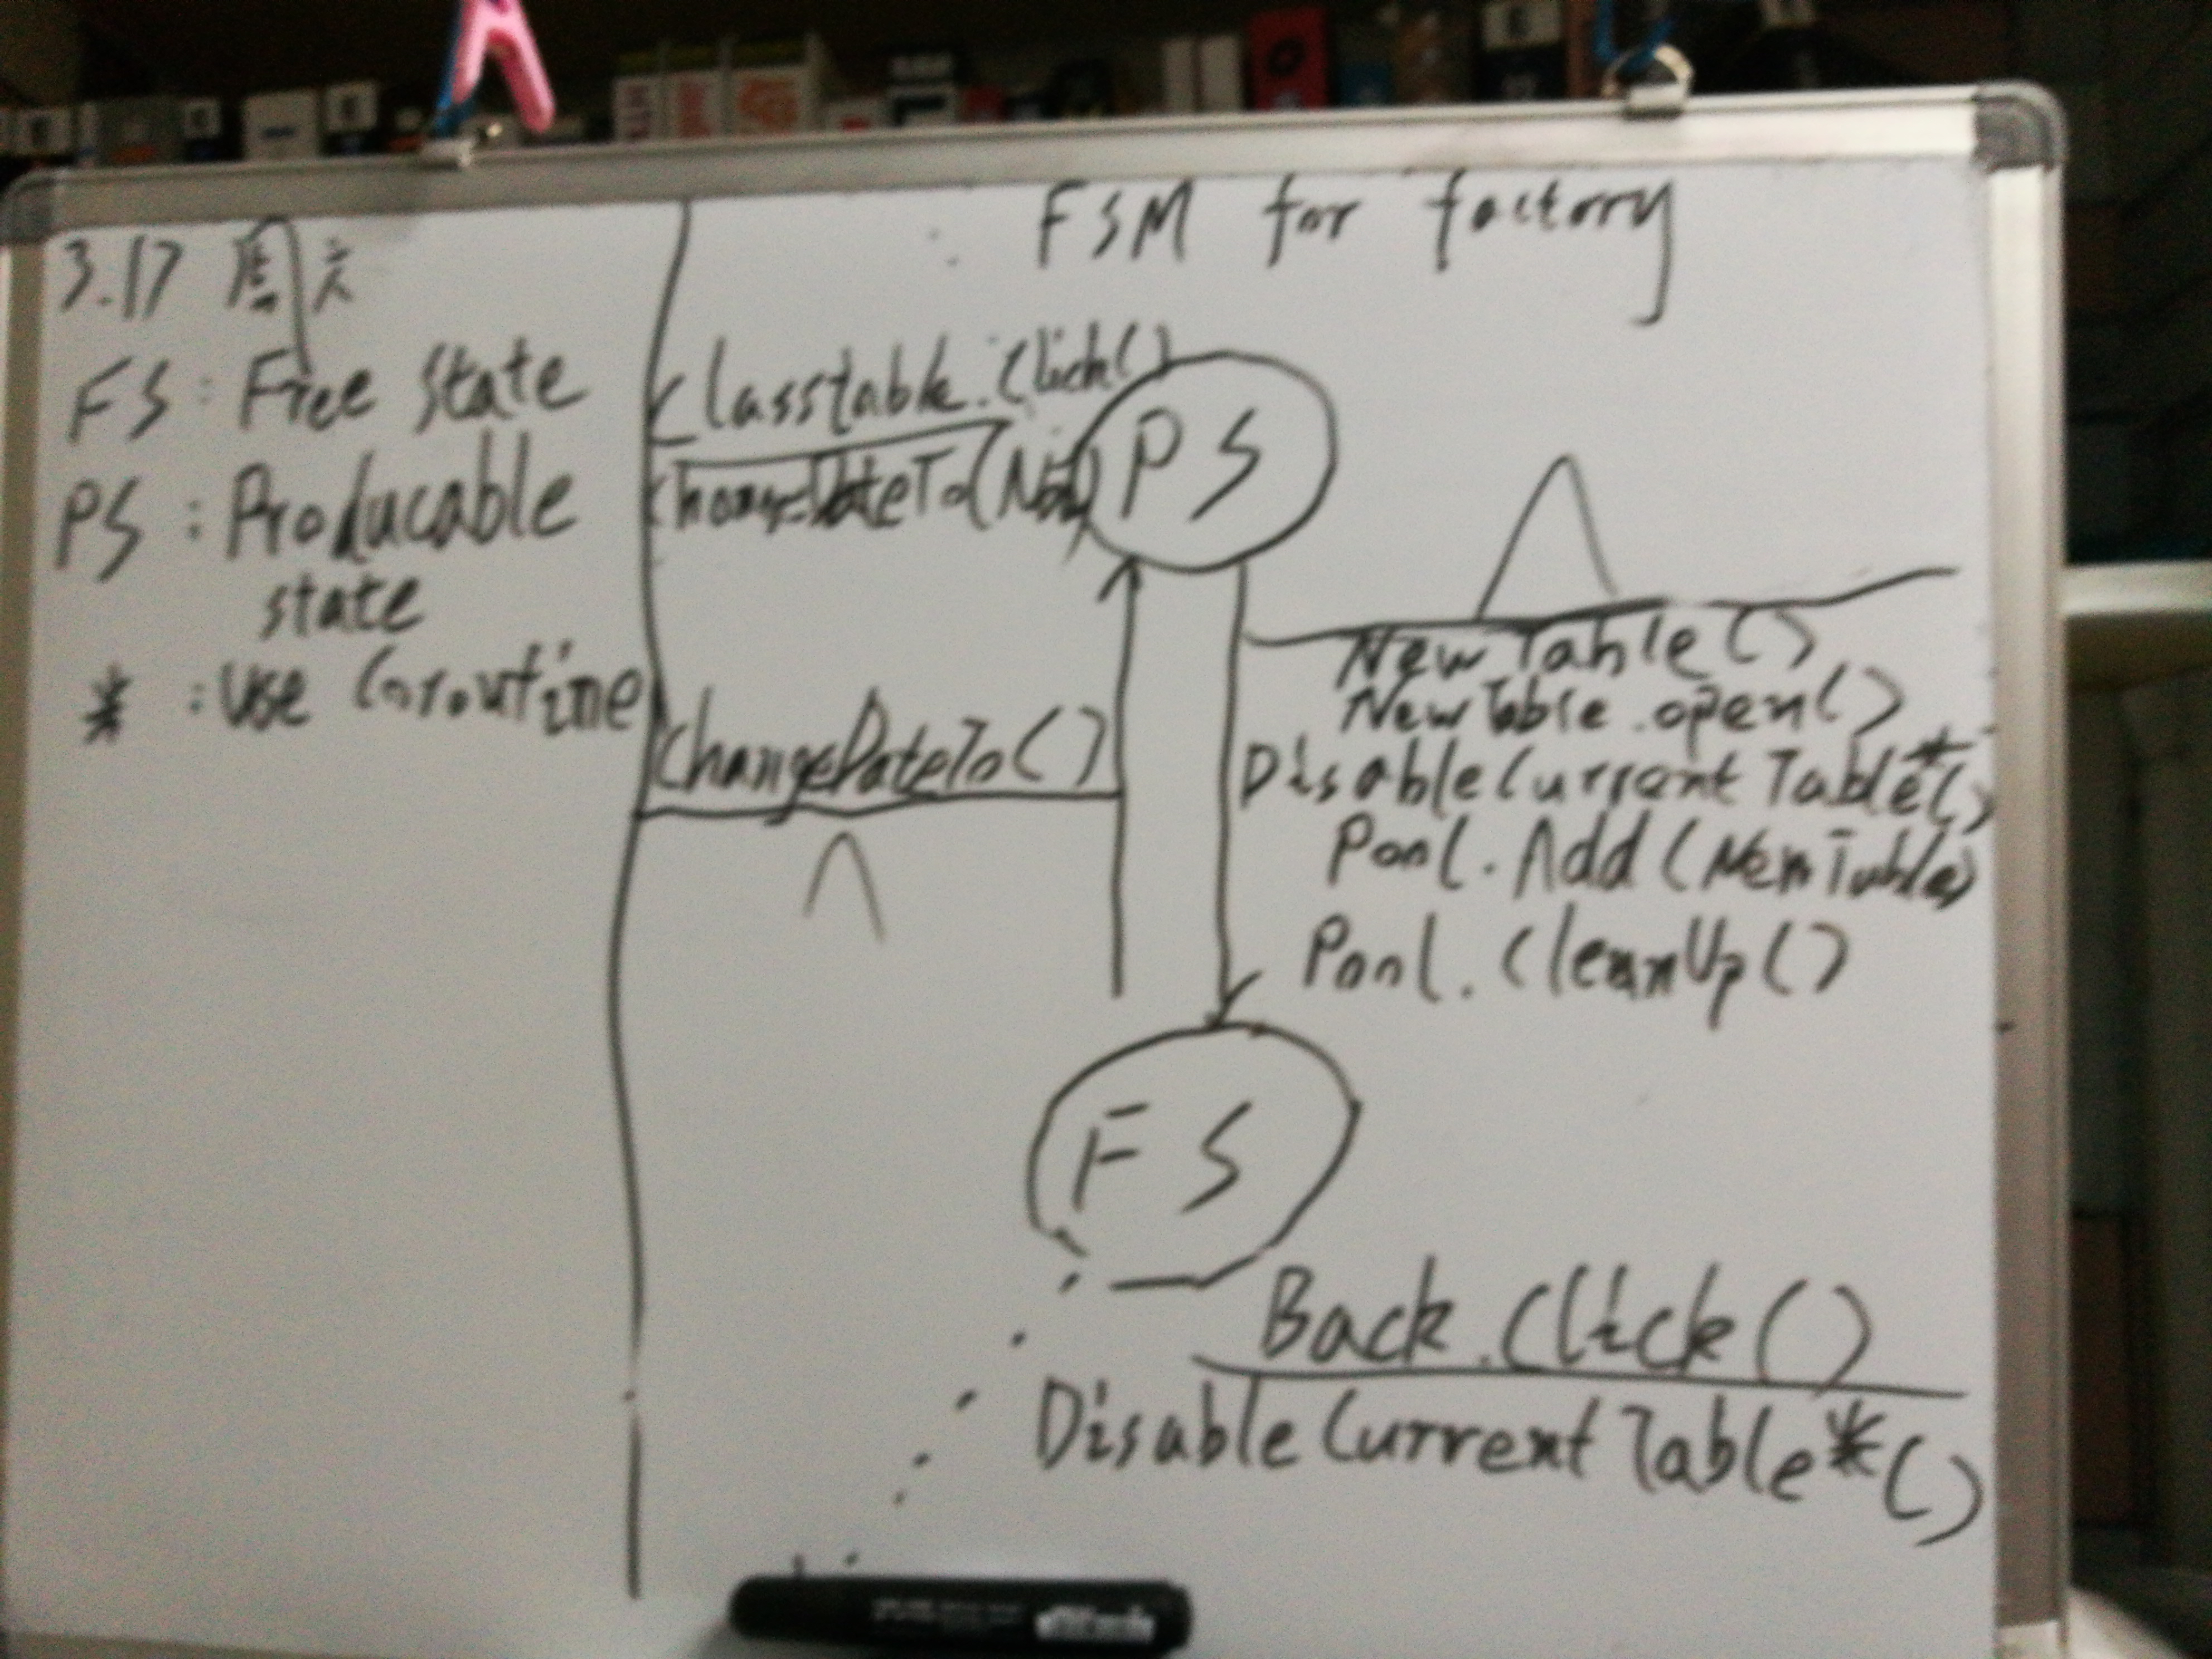 3.17 周六
FS : Free state
PS : Producable
state
* : Use Coroutine
FSM for factorry
Classtable.Click()
ChangeDateTo(Now)
PS
ChangeDateTo()
Λ
Λ
NewTable()
NewTable.open()
DisableCurrentTable*()
Pool.Add(NewTable)
Pool.CleanUp()
FS
Back.Click()
DisableCurrentTable*()